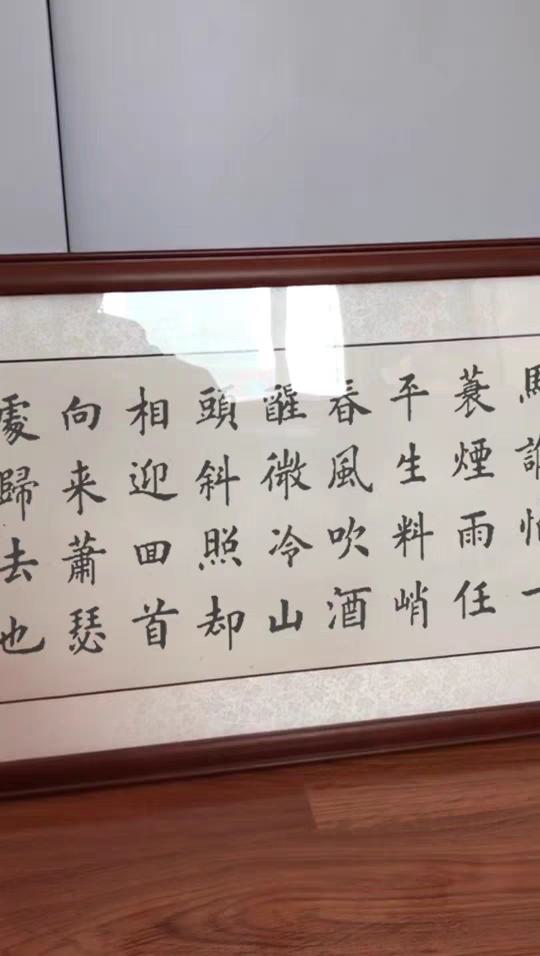 馬誰怕一
蓑煙雨任
平生料峭
春風吹酒
醒微冷山
頭斜照却
相迎囬首
向来蕭瑟
處歸去也